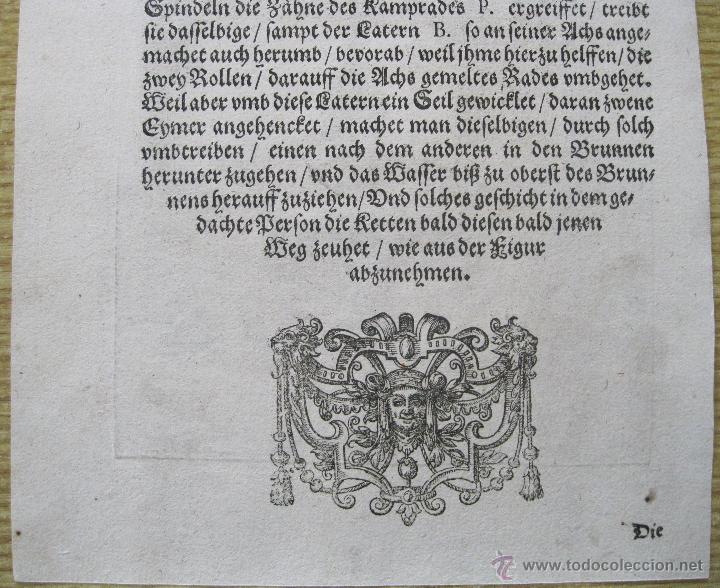 Spindeln die Zähne des Kamprades P. ergreiffet / treibt
sie dasselbige / sampt der Latern B. so an seiner Achs ange-
machet auch herumb / bevorab / weil jhme hierzu helffen / die
zwey Rollen / darauff die Achs gemeltes Rades vmbgehet.
Weil aber vmb diese Latern ein Seil gewicklet / daran zwene
Eymer angehencket / machet man dieselbigen / durch solch
vmbtreiben / einen nach dem anderen in den Brunnen
herunter zugehen / vnd das Wasser biß zu oberst des Brun-
nens herauff zuziehen / Vnd solches geschicht in dem ge-
dachte Person die Ketten bald diesen bald jenen
Weg zeuhet / wie aus der Figur
abzunehmen.
Die
www.todocoleccion.net